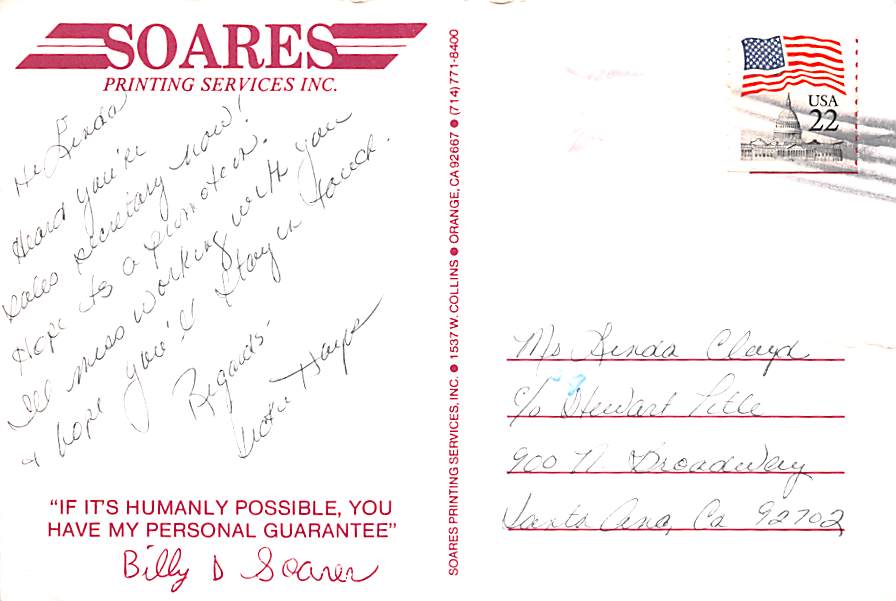 SOARES
PRINTING SERVICES INC.
Hi Linda
Heard you're
sales secretary now!
Hope its a promotion.
I'll miss working with you
& hope you'll stay in touch.
Regards-
Hays
"IF IT'S HUMANLY POSSIBLE, YOU
HAVE MY PERSONAL GUARANTEE"
Billy D Soares
SOARES PRINTING SERVICES, INC. ● 1537 W. COLLINS ● ORANGE, CA 92667 ● (714) 771-8400
USA
22
Ms Linda Cloyd
c/o Stewart Title
900 N Broadway
Santa Ana, Ca 92702